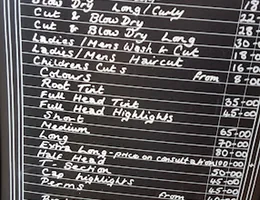 Blow Dry Long/Curly 18
Cut & Blow Dry 22
Cut & Blow Dry Long 28
Ladies/Mens Wash & Cut 30-00
Ladies/Mens Haircut 18
Childrens Cuts 16-00
Colours From 8-00
Root Tint
Full Head Tint 35-00
Full Head Highlights 45-00
Short
Medium 65-00
Long 70-00
Extra Long-price on consultation 80-00
Half Head 100-00
T-Section 50-00
Cap Highlights 45-00
Perms 45-00
From